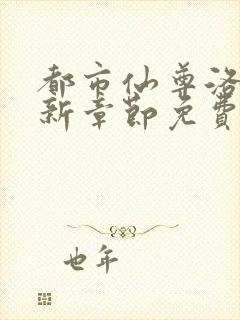 都市仙尊洛
新章节免费
也年